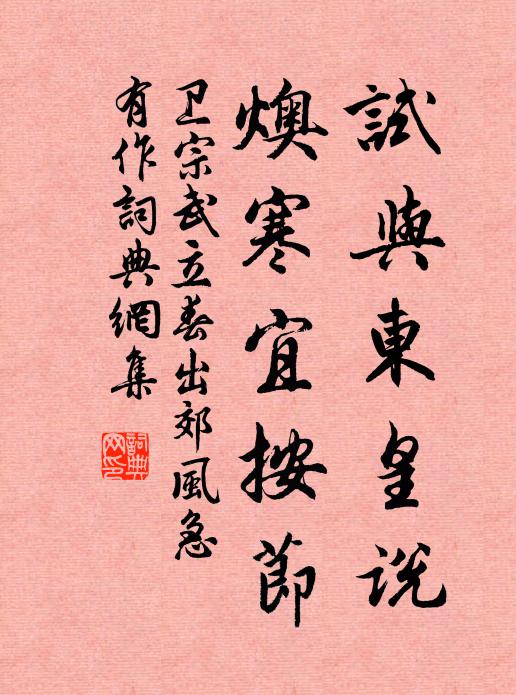 試與東皇説
燠寒宜按節
卫宗武立春出郊風急
有作詞典網集
詞典網印